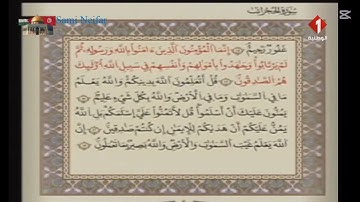 Sami Nejfar
سورة الحجرات
1
الوطنية
غَفُورٌ رَحِيمٌ ۝ إِنَّمَا الْمُؤْمِنُونَ الَّذِينَ ءَامَنُوا بِاللَّهِ وَرَسُولِهِ ثُمَّ
لَمْ يَرْتَابُوا وَجَاهَدُوا بِأَمْوَالِهِمْ وَأَنفُسِهِمْ فِي سَبِيلِ اللَّهِ أُوْلَٰئِكَ
هُمُ الصَّادِقُونَ ۝ قُلْ أَتُعَلِّمُونَ اللَّهَ بِدِينِكُمْ وَاللَّهُ يَعْلَمُ
مَا فِي السَّمَٰوَٰتِ وَمَا فِي الْأَرْضِ وَاللَّهُ بِكُلِّ شَيْءٍ عَلِيمٌ ۝
يَمُنُّونَ عَلَيْكَ أَنْ أَسْلَمُوا قُل لَّا تَمُنُّوا عَلَيَّ إِسْلَٰمَكُم بَلِ اللَّهُ
يَمُنُّ عَلَيْكُمْ أَنْ هَدَىٰكُمْ لِلْإِيمَٰنِ إِن كُنتُمْ صَٰدِقِينَ ۝ إِنَّ
اللَّهَ يَعْلَمُ غَيْبَ السَّمَٰوَٰتِ وَالْأَرْضِ وَاللَّهُ بَصِيرٌ بِمَا تَعْمَلُونَ ۝